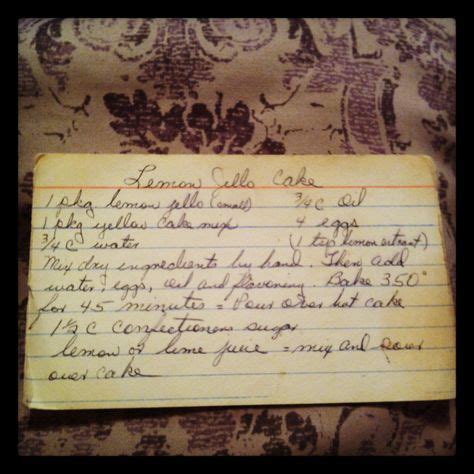 Lemon Jello Cake
1 pkg lemon jello (small) 3/4 C Oil
1 pkg yellow cake mix 4 eggs
3/4 C water (1 tsp lemon extract)
Mix dry ingredients by hand. Then add
water, eggs, oil and flavoring. Bake 350°
for 45 minutes = Pour over hot cake
1 1/2 C confectioners sugar
lemon or lime juice = mix and pour
over cake